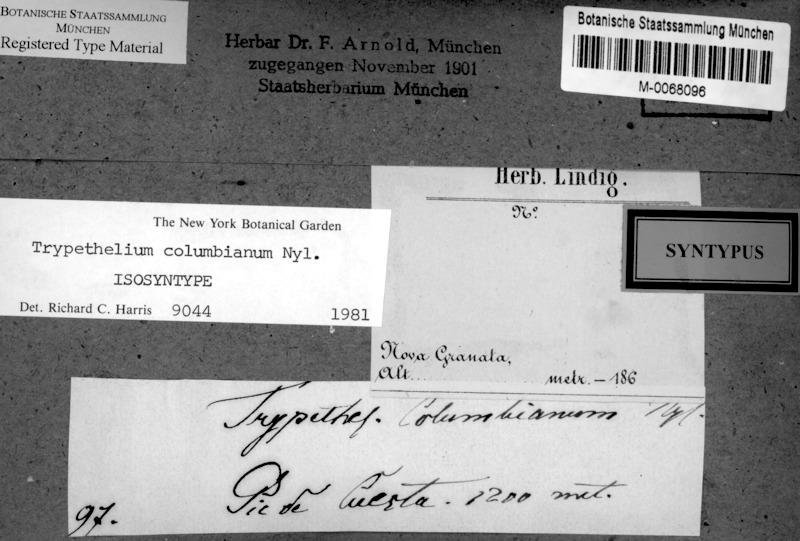 BOTANISCHE STAATSSAMMLUNG
MÜNCHEN
Registered Type Material
Herbar Dr. F. Arnold, München
zugegangen November 1901
Staatsherbarium München
Botanische Staatssammlung München
M-0068096
Herb. Lindig.
Nº
Nova Granata,
Alt. metr. – 186
SYNTYPUS
The New York Botanical Garden
Trypethelium columbianum Nyl.
ISOSYNTYPE
Det. Richard C. Harris 9044 1981
Trypethel. Columbianum Nyl.
Pie de Cuesta. 1200 met.
97.